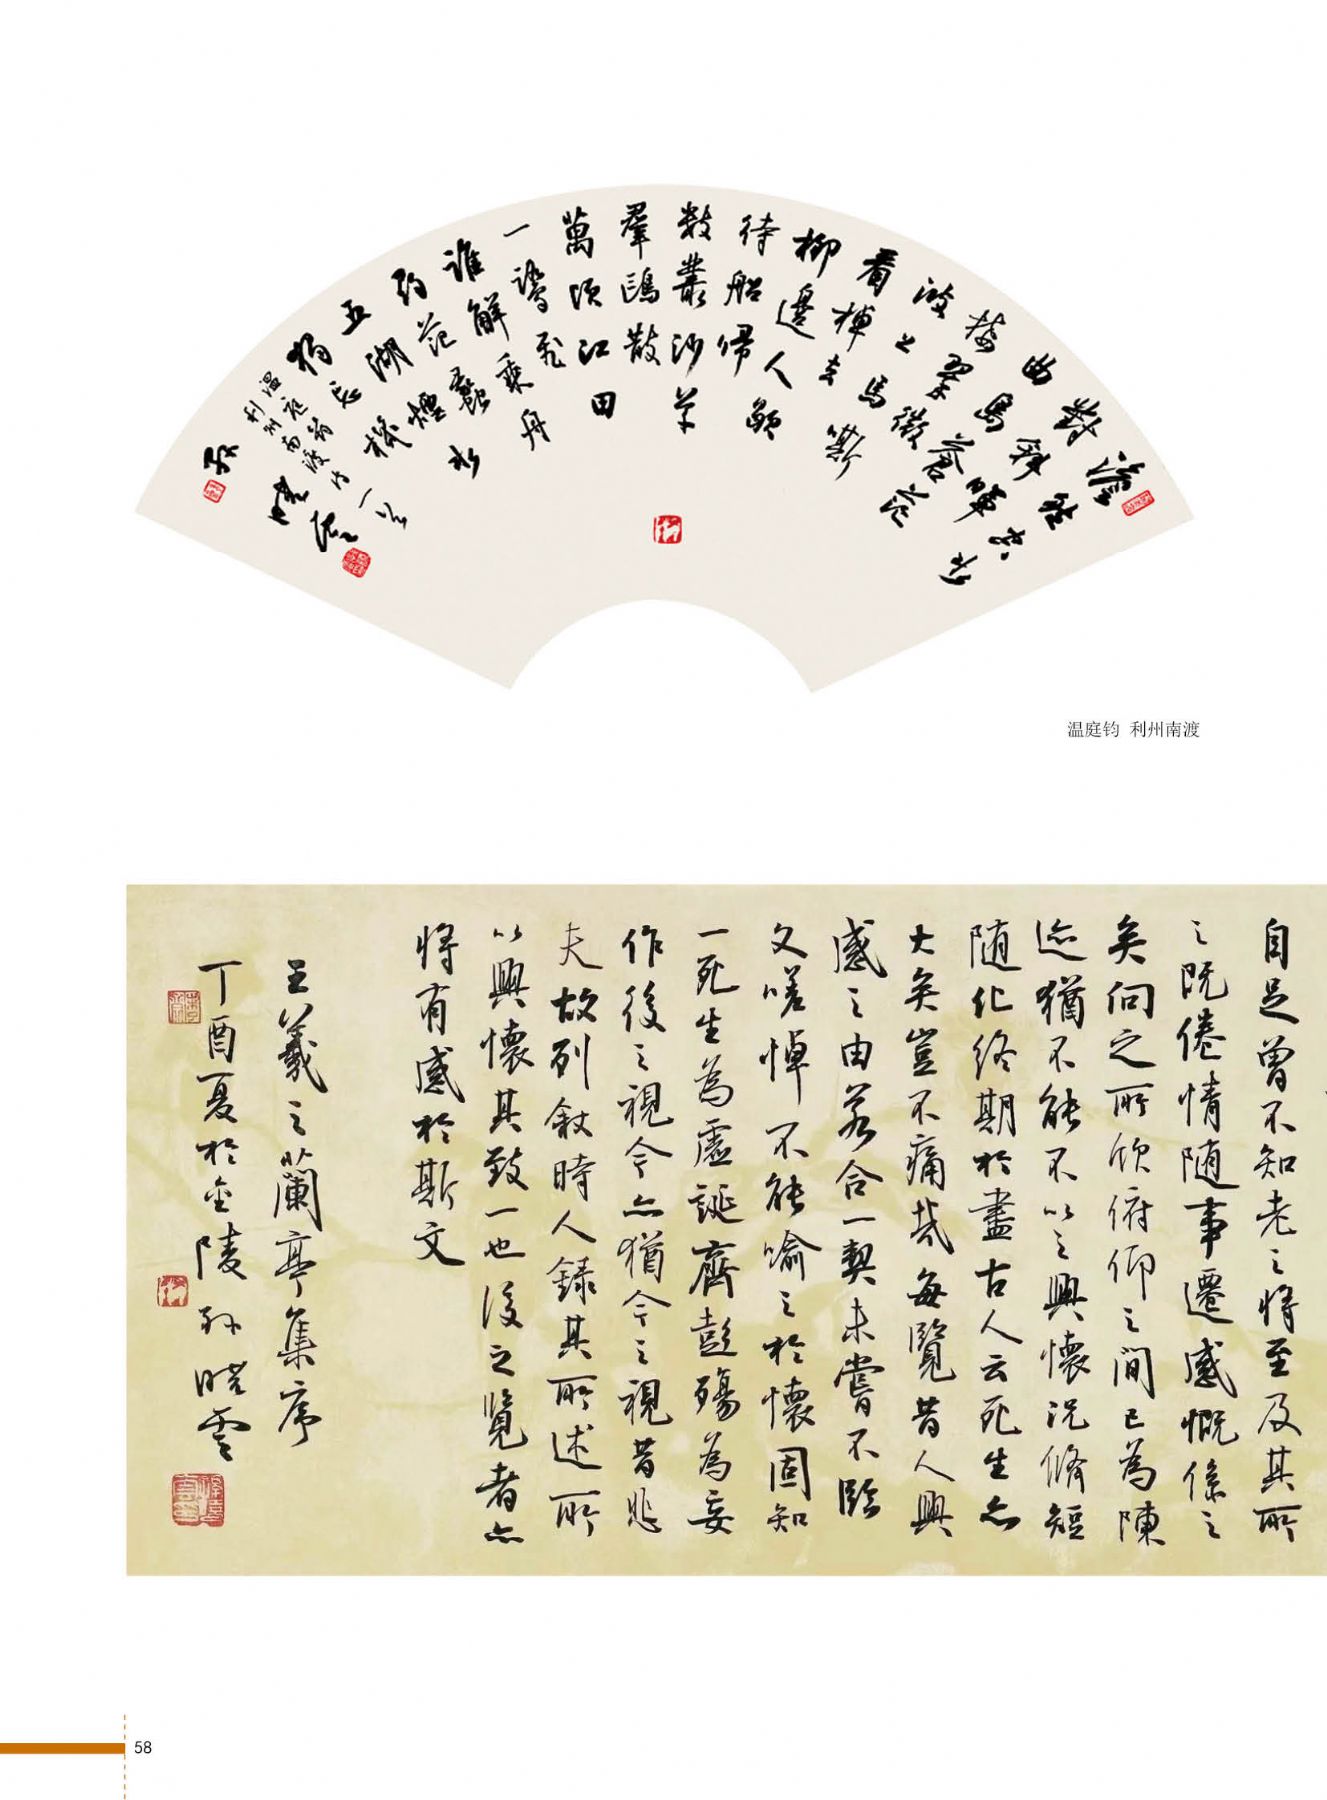 澹然空水
對斜暉
曲島蒼茫
接翠微
波上馬嘶
看棹去
柳邊人歇
待船歸
數叢沙草
羣鷗散
萬頃江田
一鷺飛
誰解乘舟
尋范蠡
五湖煙水
獨忘機
溫庭筠詩一首
利州南渡
孫曉雲
温庭钧 利州南渡
自足曾不知老之將至及其所
之既倦情隨事遷感慨係之
矣向之所欣俯仰之間已為陳
迹猶不能不以之興懷況脩短
隨化終期於盡古人云死生亦
大矣豈不痛哉每覽昔人興
感之由若合一契未嘗不臨
文嗟悼不能喻之於懷固知
一死生為虛誕齊彭殤為妄
作後之視今亦猶今之視昔悲
夫故列敘時人錄其所述所
以興懷其致一也後之覽者亦
將有感於斯文
王羲之蘭亭集序
丁酉夏於金陵孫曉雲
58